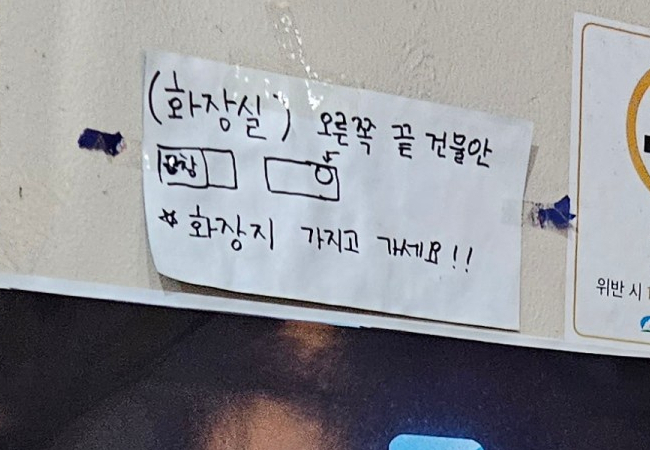 (화장실) 오른쪽 끝 건물안
* 화장지 가지고 가세요!!
위반 시